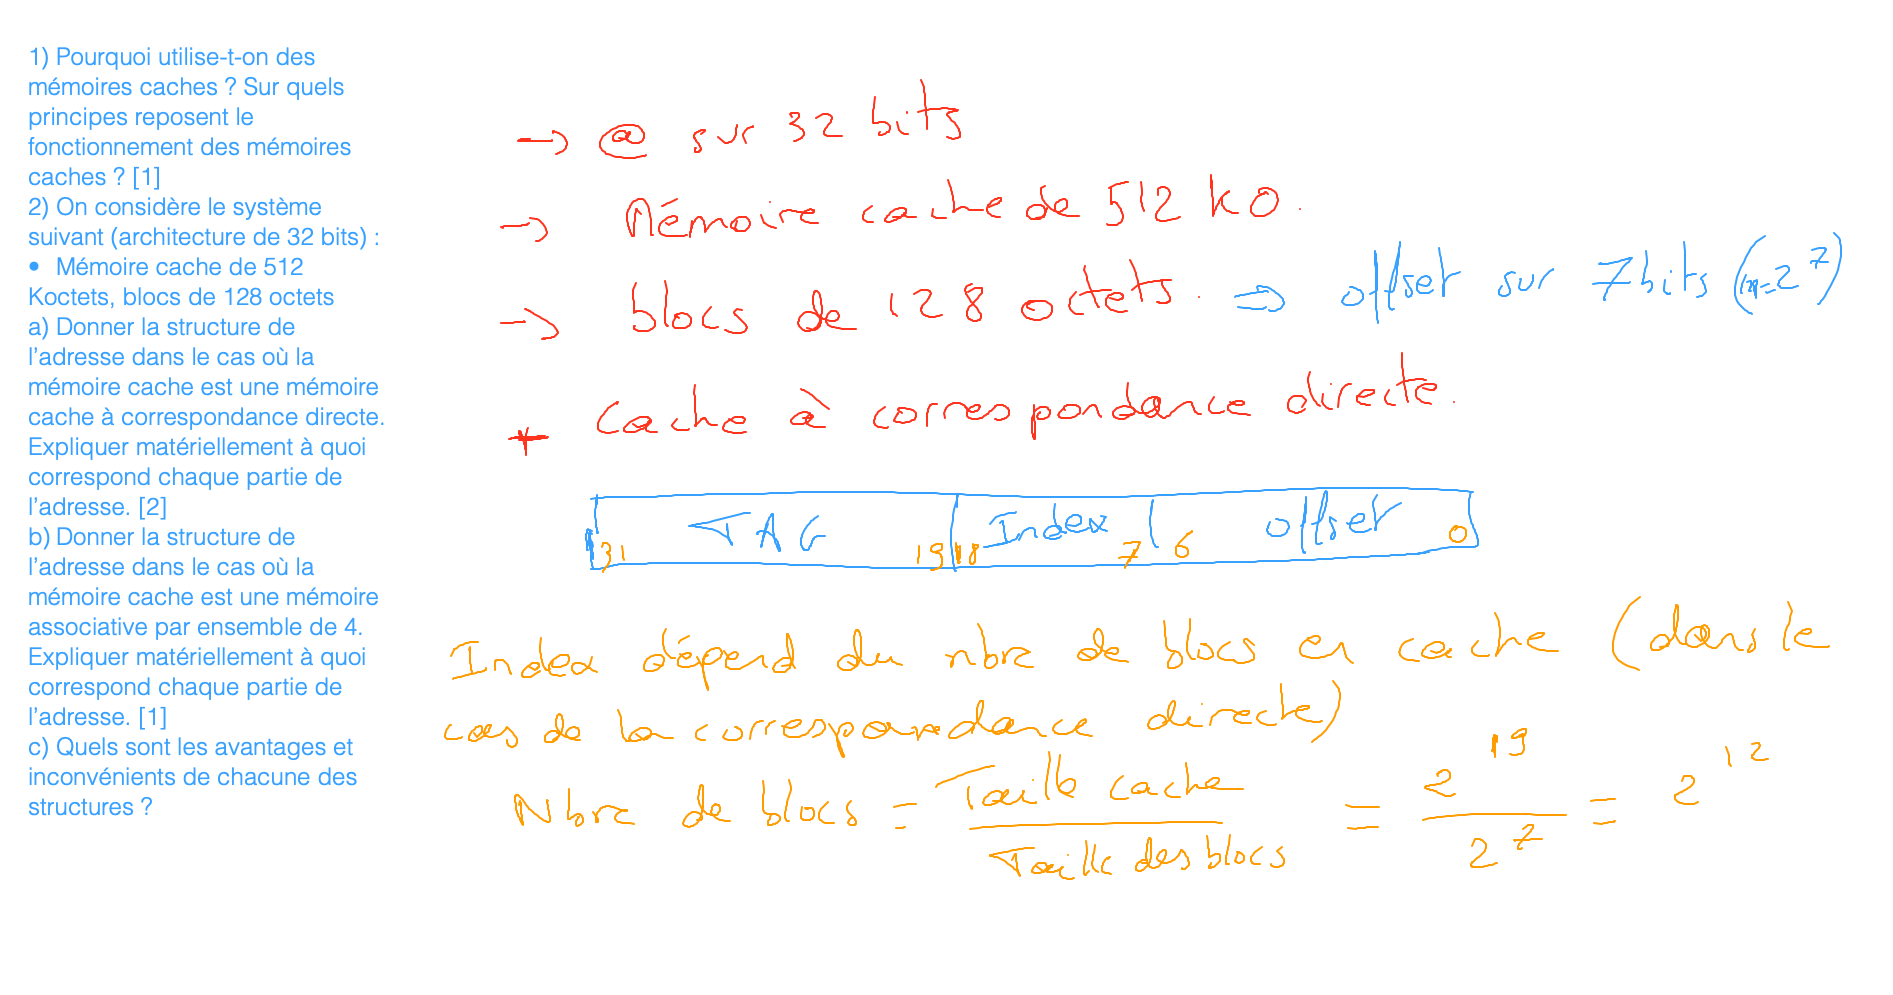 1) Pourquoi utilise-t-on des
mémoires caches ? Sur quels
principes reposent le
fonctionnement des mémoires
caches ? [1]
2) On considère le système
suivant (architecture de 32 bits) :
• Mémoire cache de 512
Koctets, blocs de 128 octets
a) Donner la structure de
l’adresse dans le cas où la
mémoire cache est une mémoire
cache à correspondance directe.
Expliquer matériellement à quoi
correspond chaque partie de
l’adresse. [2]
b) Donner la structure de
l’adresse dans le cas où la
mémoire cache est une mémoire
associative par ensemble de 4.
Expliquer matériellement à quoi
correspond chaque partie de
l’adresse. [1]
c) Quels sont les avantages et
inconvénients de chacune des
structures ?
→ @ sur 32 bits
→ Mémoire cache de 512 kO.
→ blocs de 128 octets. ⇒ offset sur 7 bits (128=2^7)
+ Cache à correspondance directe.
TAG Index offset
31 19 18 7 6 0
Index dépend du nbre de blocs en cache (dans le
cas de la correspondance directe)
Nbre de blocs = Taille cache / Taille des blocs = 2^19 / 2^7 = 2^12